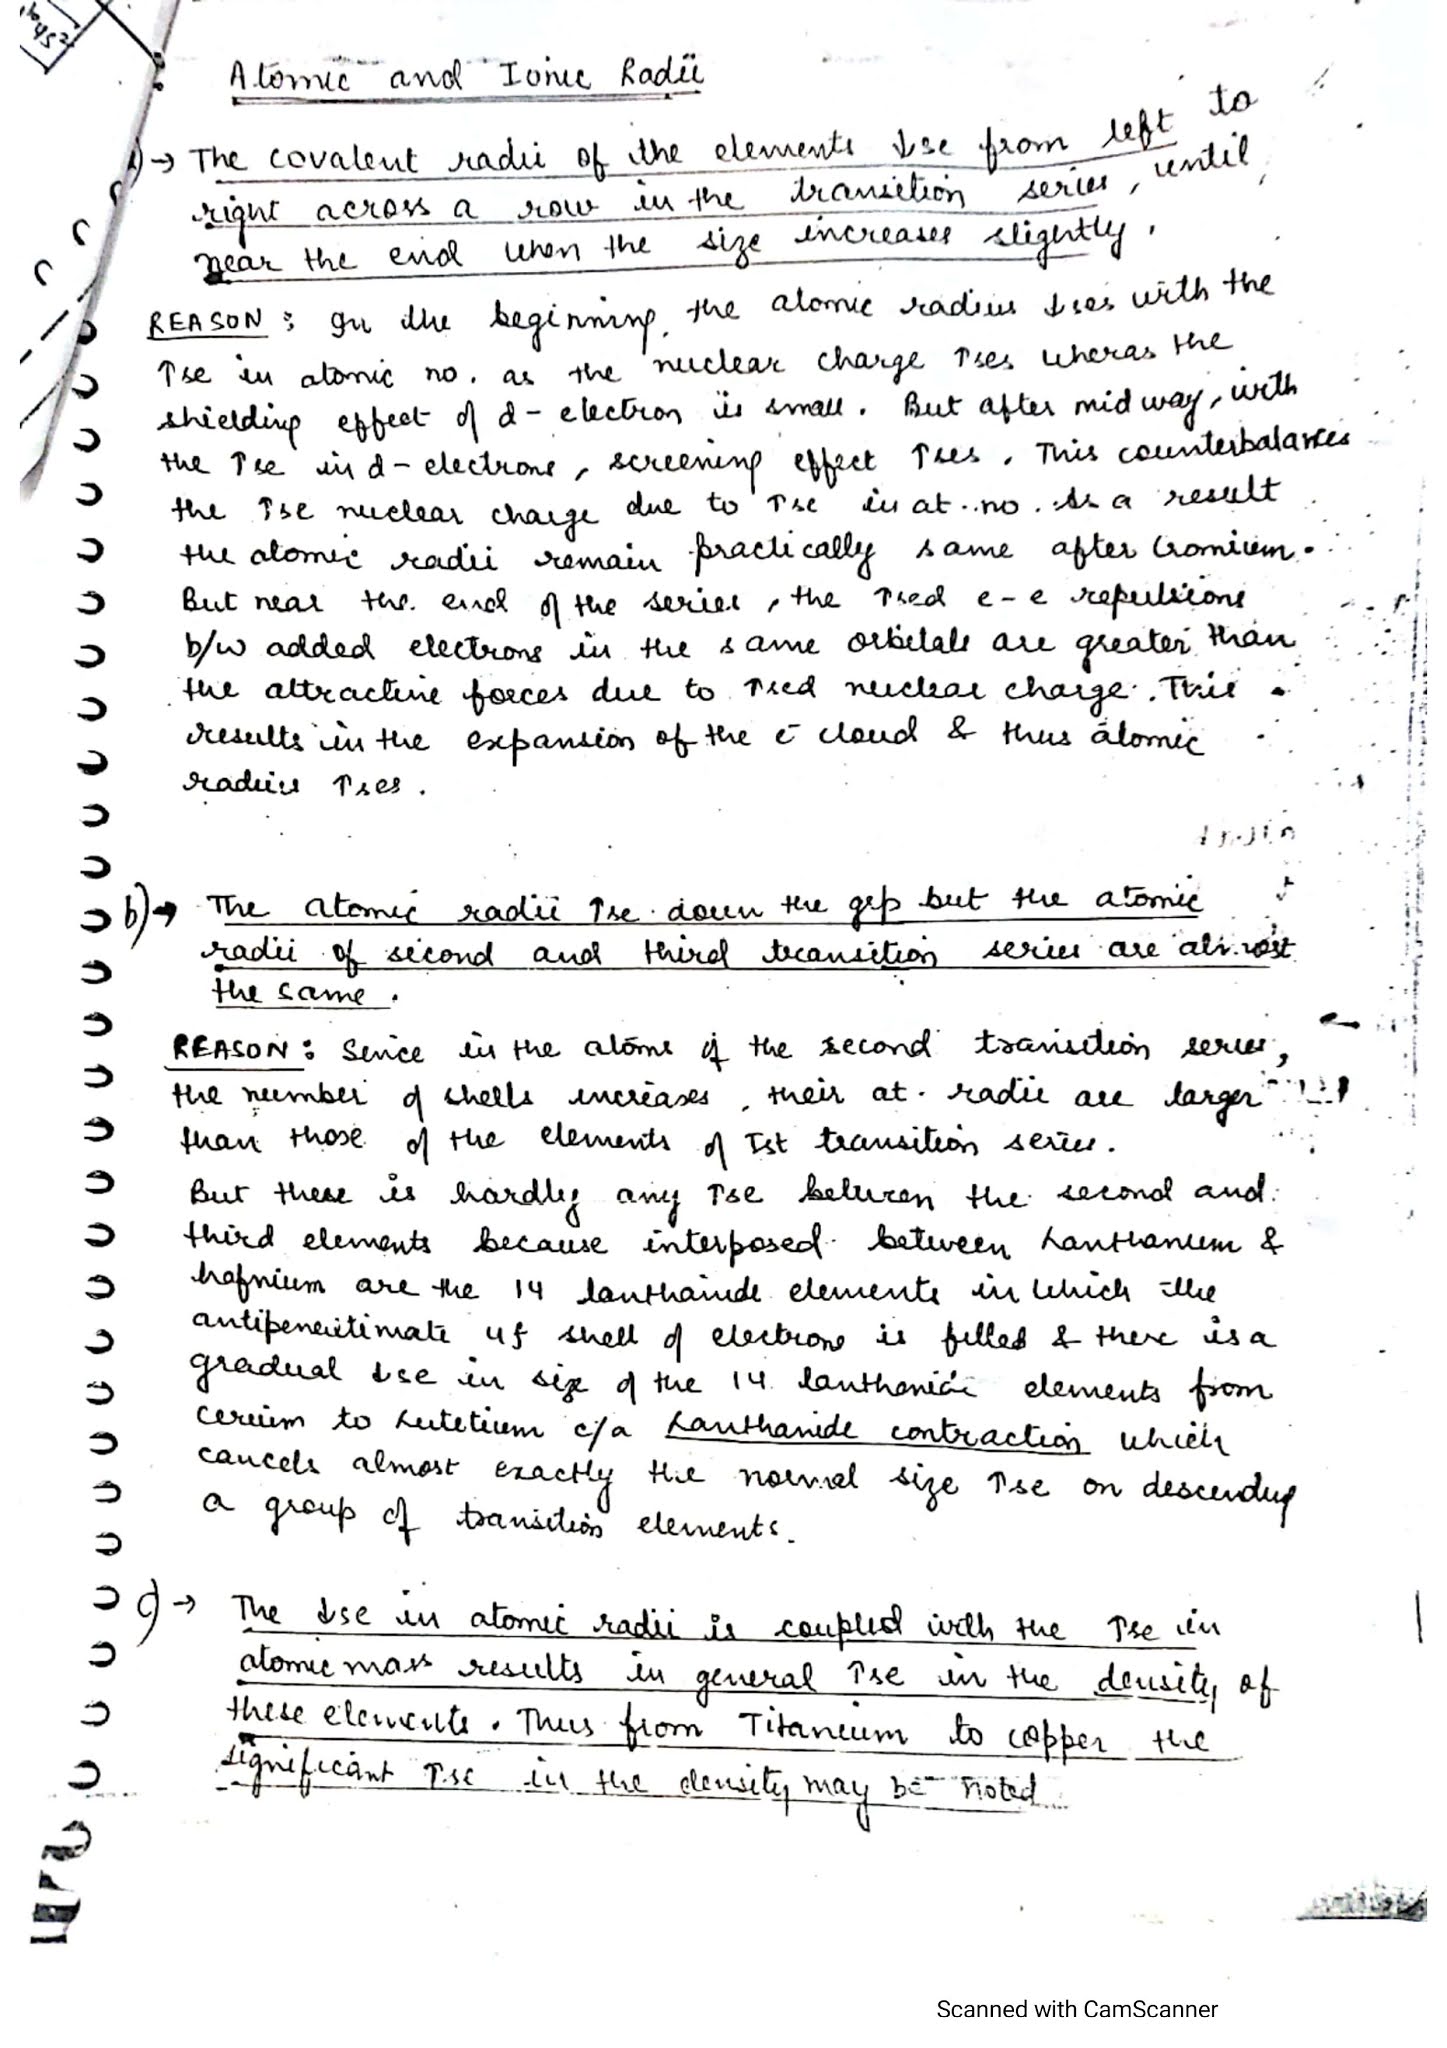 4s²
Atomic and Ionic Radii
a) → The covalent radii of the elements ↓se from left to
right across a row in the transition series, until
near the end when the size increases slightly.
REASON : In the beginning, the atomic radius ↓ses with the
↑se in atomic no. as the nuclear charge ↑ses wheras the
shielding effect of d- electron is small. But after mid way, with
the ↑se in d- electrons, screening effect ↑ses. This counterbalances
the ↑se nuclear charge due to ↑se in at. no. As a result
the atomic radii remain practically same after Cromium.
But near the end of the series, the ↑sed e-e repulsions
b/w added electrons in the same orbitals are greater than
the attractive forces due to ↑sed nuclear charge. This
results in the expansion of the e⁻ cloud & thus atomic
radius ↑ses.
b) → The atomic radii ↑se down the grp but the atomic
radii of second and third transition series are almost
the same.
REASON : Since in the atoms of the second transition series,
the number of shells increases, their at. radii are larger
than those of the elements of Ist transition series.
But there is hardly any ↑se between the second and
third elements because interposed between Lanthanum &
hafnium are the 14 lanthanide elements in which the
antipenultimate 4f shell of electrons is filled & there is a
gradual ↓se in size of the 14 lanthanide elements from
cerium to Lutetium c/a Lanthanide contraction which
cancels almost exactly the normal size ↑se on descending
a group of transition elements.
c) → The ↓se in atomic radii is coupled with the ↑se in
atomic mass results in general ↑se in the density of
these elements. Thus from Titanium to copper the
significant ↑se in the density may be noted
Scanned with CamScanner